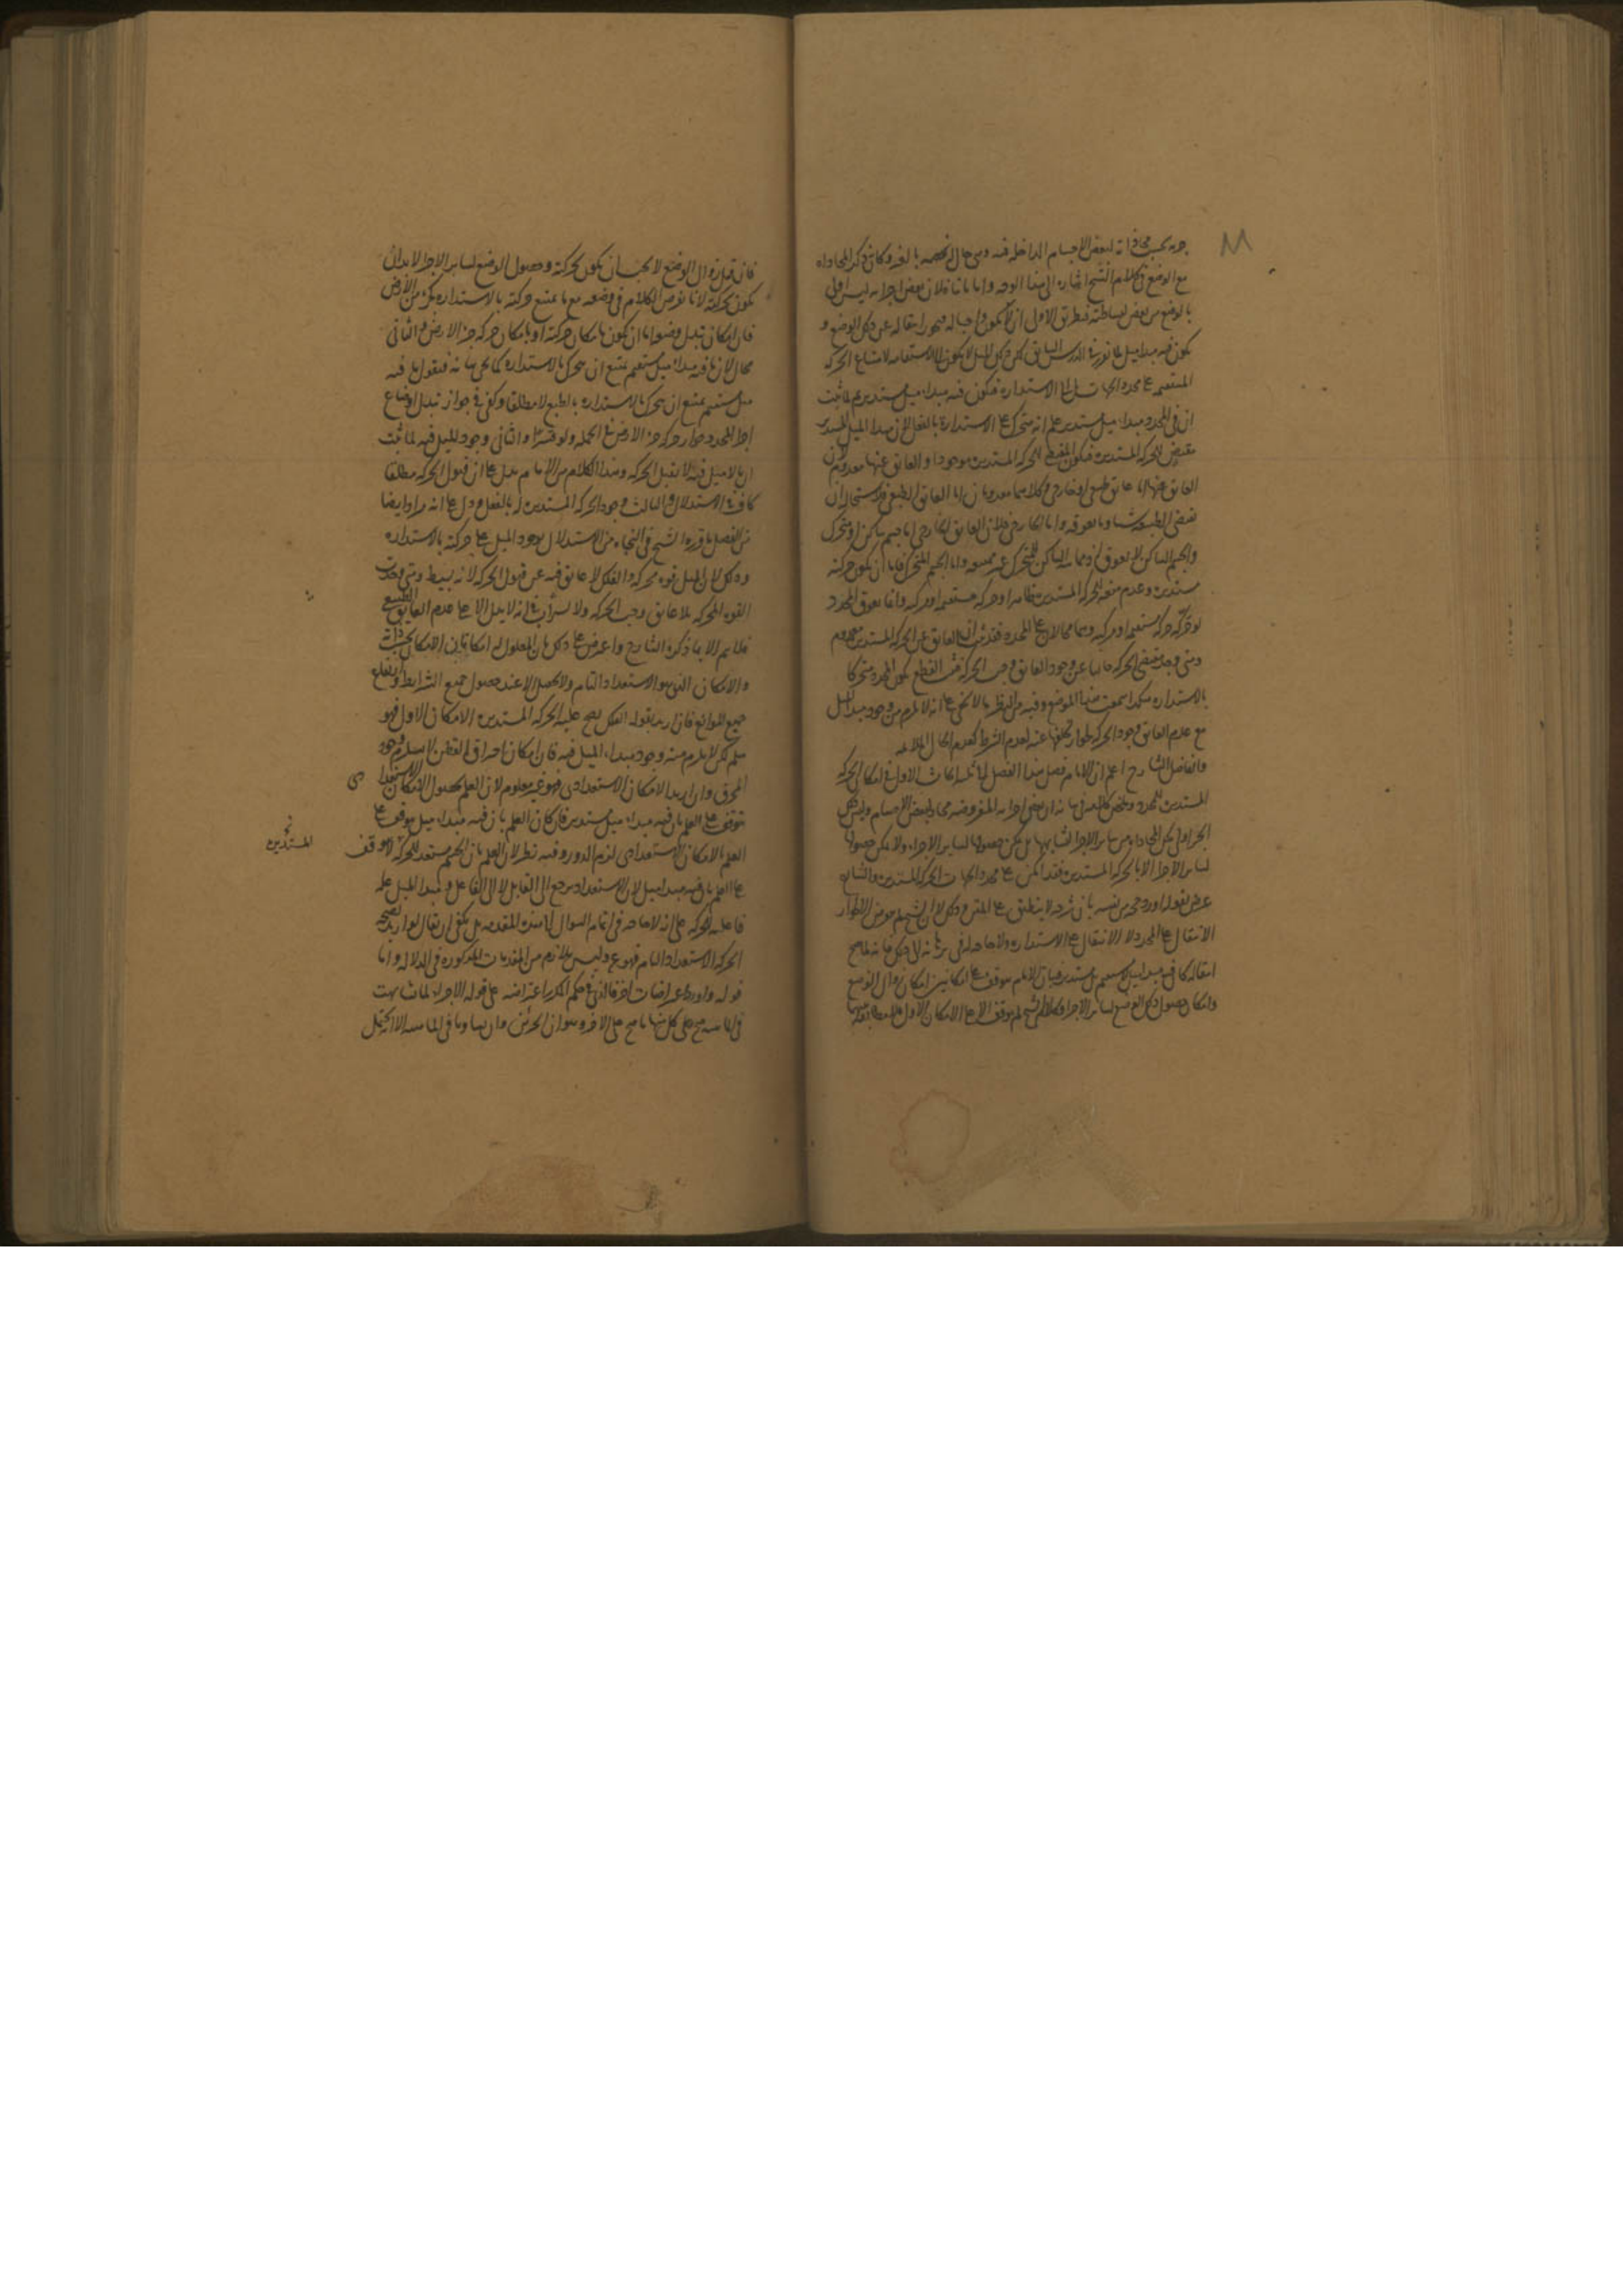 جزئه بحسب محاذاته لبعض الاجسام الداخلة فيه وهي حال تخصه بالغير وكان ذكر المحاذاة
مع الوضع في كلام الشيخ اشارة الى هذا الوجه واما ثانيا فلان بعض اجزائه ليس اولى
بالوضع من بعض لبساطته فبطريق الاولى ان لا يكون واجبا له فيجوز انتقاله عن ذلك الوضع و
يكون فيه مبدا ميل لما تقرر في الدرس السابق لكن ذلك الميل لا يكون الا لاستقامة لامتناع الحركة
المستقيمة على محدد الجهات بل الى الاستدارة فيكون فيه مبداء ميل مستدير ثم لما ثبت
ان في المحدد مبداء ميل مستدير علم انه متحرك على الاستدارة بالفعل لان مبدا الميل المستدير
مقتض للحركة المستديرة فيكون المقتضى للحركة المستديرة موجودا والعايق عنها معدوم لان
العايق عنها اما عايق طبيعي او خارجي وكلاهما معدومان اما العايق الطبيعي فلاستحالة ان
تقتضي الطبيعة شيئا وما يعوقه واما الخارجي فلان العايق الخارجي اما جسم ساكن او متحرك
والجسم الساكن لا يعوق اذ مماسة الساكن للمتحرك غير ممتنعة واما الجسم المتحرك فاما ان يكون حركته
مستديرة وعدم منعه للحركة المستديرة ظاهر او حركة مستقيمة او مركبة وانما يعوق المحدد
لو حركه حركة مستقيمة او مركبة وهما محالان على المحدد فقد ثبت ان العايق عن الحركة المستديرة معدوم
ومتى وجد مقتضى الحركة خاليا عن وجود العايق وجب الحركة فثبت القطع بكون المحدد متحركا
بالاستدارة هكذا سمعت هذا الموضع وفيه من النظر ما لا يخفى على انه لا يلزم من وجود مبدا الميل
مع عدم العايق وجود الحركة لجواز تخلفها عنه لعدم الشرط كعدم الحال الملايمة
والفاضل الشارح اعلم ان الامام فصل هذا الفصل الى ثلث ابحاث الاول في امكان الحركة
المستديرة للمحدد وملخص كلامه فيها انه ان بعض اجزائه المفروضة محاذ لبعض الاجسام وليس ذلك
الجزء اولى بتلك المحاذاة من ساير الاجزاء لتشابهها بل يمكن حصولها لساير الاجزاء ولا يمكن حصولها
لساير الاجزاء الا بالحركة المستديرة فقد امكن على محدد الجهات الحركة المستديرة والشارح
عرض بقوله اورد حجة من نفسه بان شرحه لا ينطبق على المتن وذلك لان الشيخ لم يتعرض الا لجواز
الانتقال على المحدد لا الانتقال على الاستدارة ولا حاجة له في برهانه الى ذلك فانه لما صح
انتقاله كان فيه مبدا ميل لا مستقيم بل مستدير فبيان الامام موقوف على امكانين امكان زوال الوضع
وامكان حصول ذلك الوضع لساير الاجزاء وكلام الشيخ لم يتوقف الا على الامكان الاول
فان قيل زوال الوضع لا يجب ان يكون بحركته وحصول الوضع لساير الاجزاء لا بد ان
يكون بحركته لانا نفرض الكلام في وضعه مع ما يمتنع حركته بالاستدارة كجزء من الارض
فان امكان تبدل وضعه اما ان يكون بامكان حركته او بامكان حركة جزء الارض والثاني
محال لان ما فيه مبداء ميل مستقيم يمتنع ان يتحرك بالاستدارة كما يجئ بيانه فنقول ما فيه
ميل مستقيم يمتنع ان يتحرك بالاستدارة بالطبع لا مطلقا وكفى في جواز تبدل اوضاع
اجزاء المحدد جواز حركة جزء الارض في الجملة ولو قسرا والثاني وجود الميل فيه لما ثبت
ان ما لا ميل فيه لا يقبل الحركة وهذا الكلام من الامام يدل على ان قبول الحركة مطلقا
كاف في الاستدلال والثالث وجود الحركة المستديرة له بالفعل ودل على انه مراد ايضا
من الفصل ما قرره الشيخ في النجاة من الاستدلال بوجود الميل على حركته بالاستدارة
وذلك لان الميل قوة محركة والفلك لا عايق فيه عن قبول الحركة لانه بسيط ومتى وجدت
القوة المحركة بلا عايق وجب الحركة ولا ستر في انه لا يدل الا على عدم العايق الطبيعي
فلا يتم الا بما ذكره الشارح واعترض على ذلك بان المعلول له امكانان الامكان بحسب ذاته
والامكان الذي هو الاستعداد التام ولا يحصل الا عند حصول جميع الشرايط وارتفاع
جميع الموانع فان اريد بقوله الفلك يصح عليه الحركة المستديرة الامكان الاول فهو
مسلم لكن لا يلزم منه وجود مبداء الميل فيه فان امكان احراق القطن لا يستلزم وجود
المحرق وان اريد الامكان الاستعدادي فهو غير معلوم لان العلم بحصول الامكان الاستعدادي
يتوقف على العلم بان فيه مبداء ميل مستدير فان كان العلم بان فيه مبداء ميل يتوقف على
العلم بالامكان الاستعدادي لزم الدور وفيه نظر لان العلم بان الجسم مستعد للحركة لا يتوقف
المستديرة
على العلم بان فيه مبدا ميل لان الاستعداد يرجع الى القابل لا الى الفاعل ومبدا الميل علة
فاعلية للحركة على انه لا حاجة في اتمام السوال الى هذه المقدمة بل يكفي ان يقال لو اريد بصحة
الحركة الاستعداد التام فهو ع وليس بلازم من المقدمات المذكورة في الدلالة واما
قوله واورد اعتراضات اخر فالذي في حكم المكرر اعتراضه على قوله الاجزاء لما تشابهت
في الماهية صح على كل منها ما صح على الاخر وهو ان الجزئين وان تساويا في الماهية الا